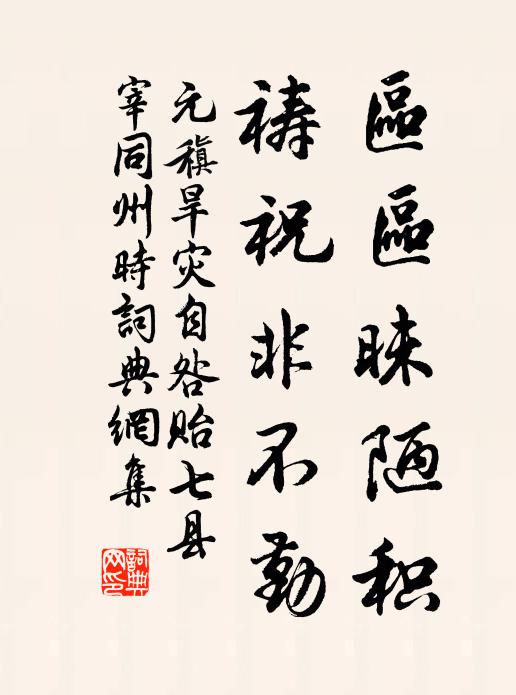 區區昧陋积
祷祝非不勤
元稹旱灾自咎贻七县
宰同州時詞典網集
詞典网印